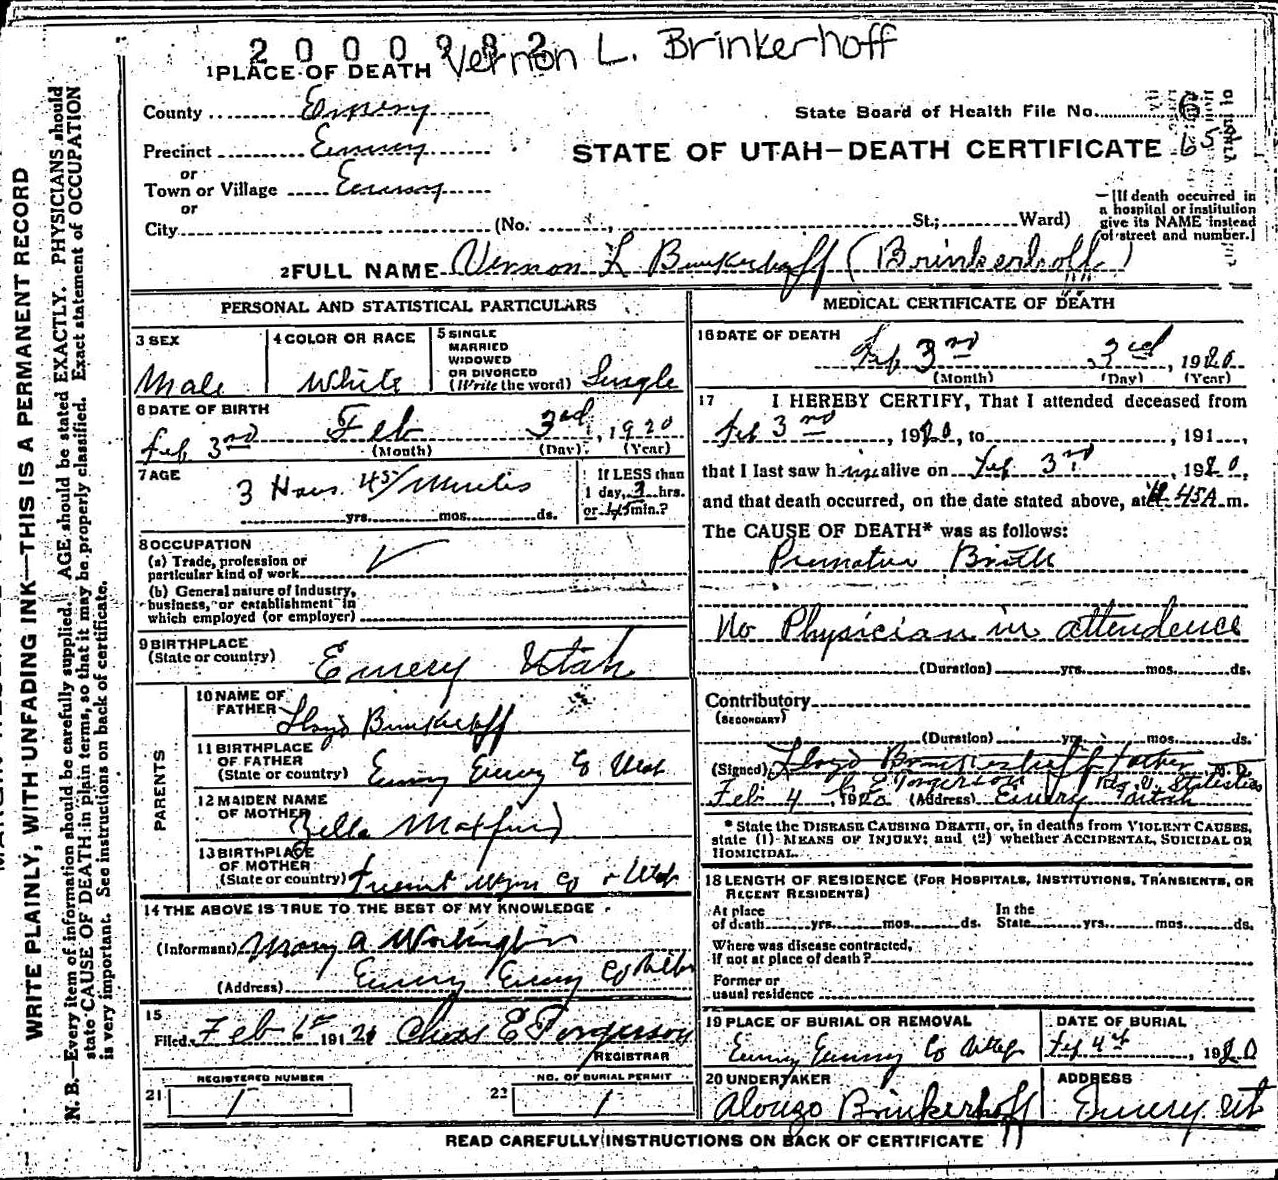 2000982 Vernon L. Brinkerhoff
1 PLACE OF DEATH
County Emery
State Board of Health File No. 6
Precinct Emery
STATE OF UTAH—DEATH CERTIFICATE 65
or
Town or Village Emery
or
City (No. St.; Ward)
[If death occurred in
a hospital or institution
give its NAME instead
of street and number.]
2 FULL NAME Vernon L Brinkerhoff (Brinkerhoff)
PERSONAL AND STATISTICAL PARTICULARS
3 SEX
Male
4 COLOR OR RACE
White
5 SINGLE
MARRIED
WIDOWED
OR DIVORCED
(Write the word) Single
6 DATE OF BIRTH
Feb 3rd Feb 3rd, 1920
(Month) (Day) (Year)
7 AGE
3 Hours 45 Minutes
yrs. mos. ds.
If LESS than
1 day, 3 hrs.
or 45 min.?
8 OCCUPATION
(a) Trade, profession or
particular kind of work
(b) General nature of industry,
business, or establishment in
which employed (or employer)
9 BIRTHPLACE
(State or country) Emery Utah
PARENTS
10 NAME OF
FATHER Lloyd Brinkerhoff
11 BIRTHPLACE
OF FATHER
(State or country) Emery Emery Co Utah
12 MAIDEN NAME
OF MOTHER Zella
13 BIRTHPLACE
OF MOTHER
(State or country) Fremont Wayne Co Utah
14 THE ABOVE IS TRUE TO THE BEST OF MY KNOWLEDGE
(Informant) Mary A Worthington
(Address) Emery Emery Co Utah
15
Filed Feb 6 191 Chas E Torgerson
REGISTRAR
REGISTERED NUMBER
21 1
NO. OF BURIAL PERMIT
22 1
MEDICAL CERTIFICATE OF DEATH
16 DATE OF DEATH
Feb 3rd 3rd, 1920
(Month) (Day) (Year)
17 I HEREBY CERTIFY, That I attended deceased from
Feb 3rd, 1920, to , 191 ,
that I last saw him alive on Feb 3rd 1920,
and that death occurred, on the date stated above, at 45 A m.
The CAUSE OF DEATH* was as follows:
Premature Birth
No Physician in attendence
(Duration) yrs. mos. ds.
Contributory
(SECONDARY)
(Duration) yrs. mos. ds.
(Signed) Lloyd Brinkerhoff father M.D.
C E Torgerson Reg. V. Statistics
Feb 4, 1920 (Address) Emery Utah
* State the DISEASE CAUSING DEATH, or, in deaths from VIOLENT CAUSES,
state (1) MEANS OF INJURY; and (2) whether ACCIDENTAL, SUICIDAL OR
HOMICIDAL.
18 LENGTH OF RESIDENCE (FOR HOSPITALS, INSTITUTIONS, TRANSIENTS, OR
RECENT RESIDENTS)
At place
of death yrs. mos. ds.
In the
State yrs. mos. ds.
Where was disease contracted,
if not at place of death?
Former or
usual residence
19 PLACE OF BURIAL OR REMOVAL
Emery Emery Co Utah
DATE OF BURIAL
Feb 4th, 1920
20 UNDERTAKER
Alonzo Brinkerhoff
ADDRESS
Emery Ut
READ CAREFULLY INSTRUCTIONS ON BACK OF CERTIFICATE
WRITE PLAINLY, WITH UNFADING INK—THIS IS A PERMANENT RECORD
N. B.—Every item of information should be carefully supplied. AGE should be stated EXACTLY. PHYSICIANS should
state CAUSE OF DEATH in plain terms, so that it may be properly classified. Exact statement of OCCUPATION
is very important. See instructions on back of certificate.